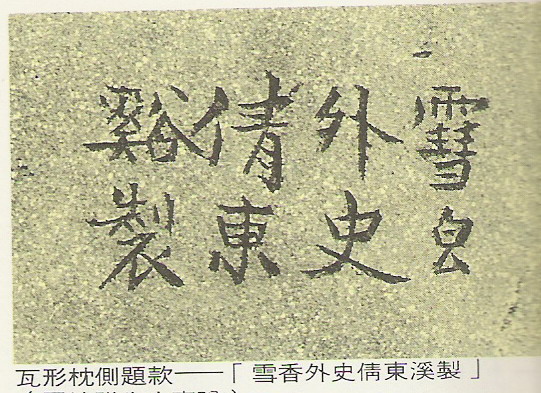 䨮皀
外史
倩東
谿製
瓦形枕側題款——「雪香外史倩東溪製」